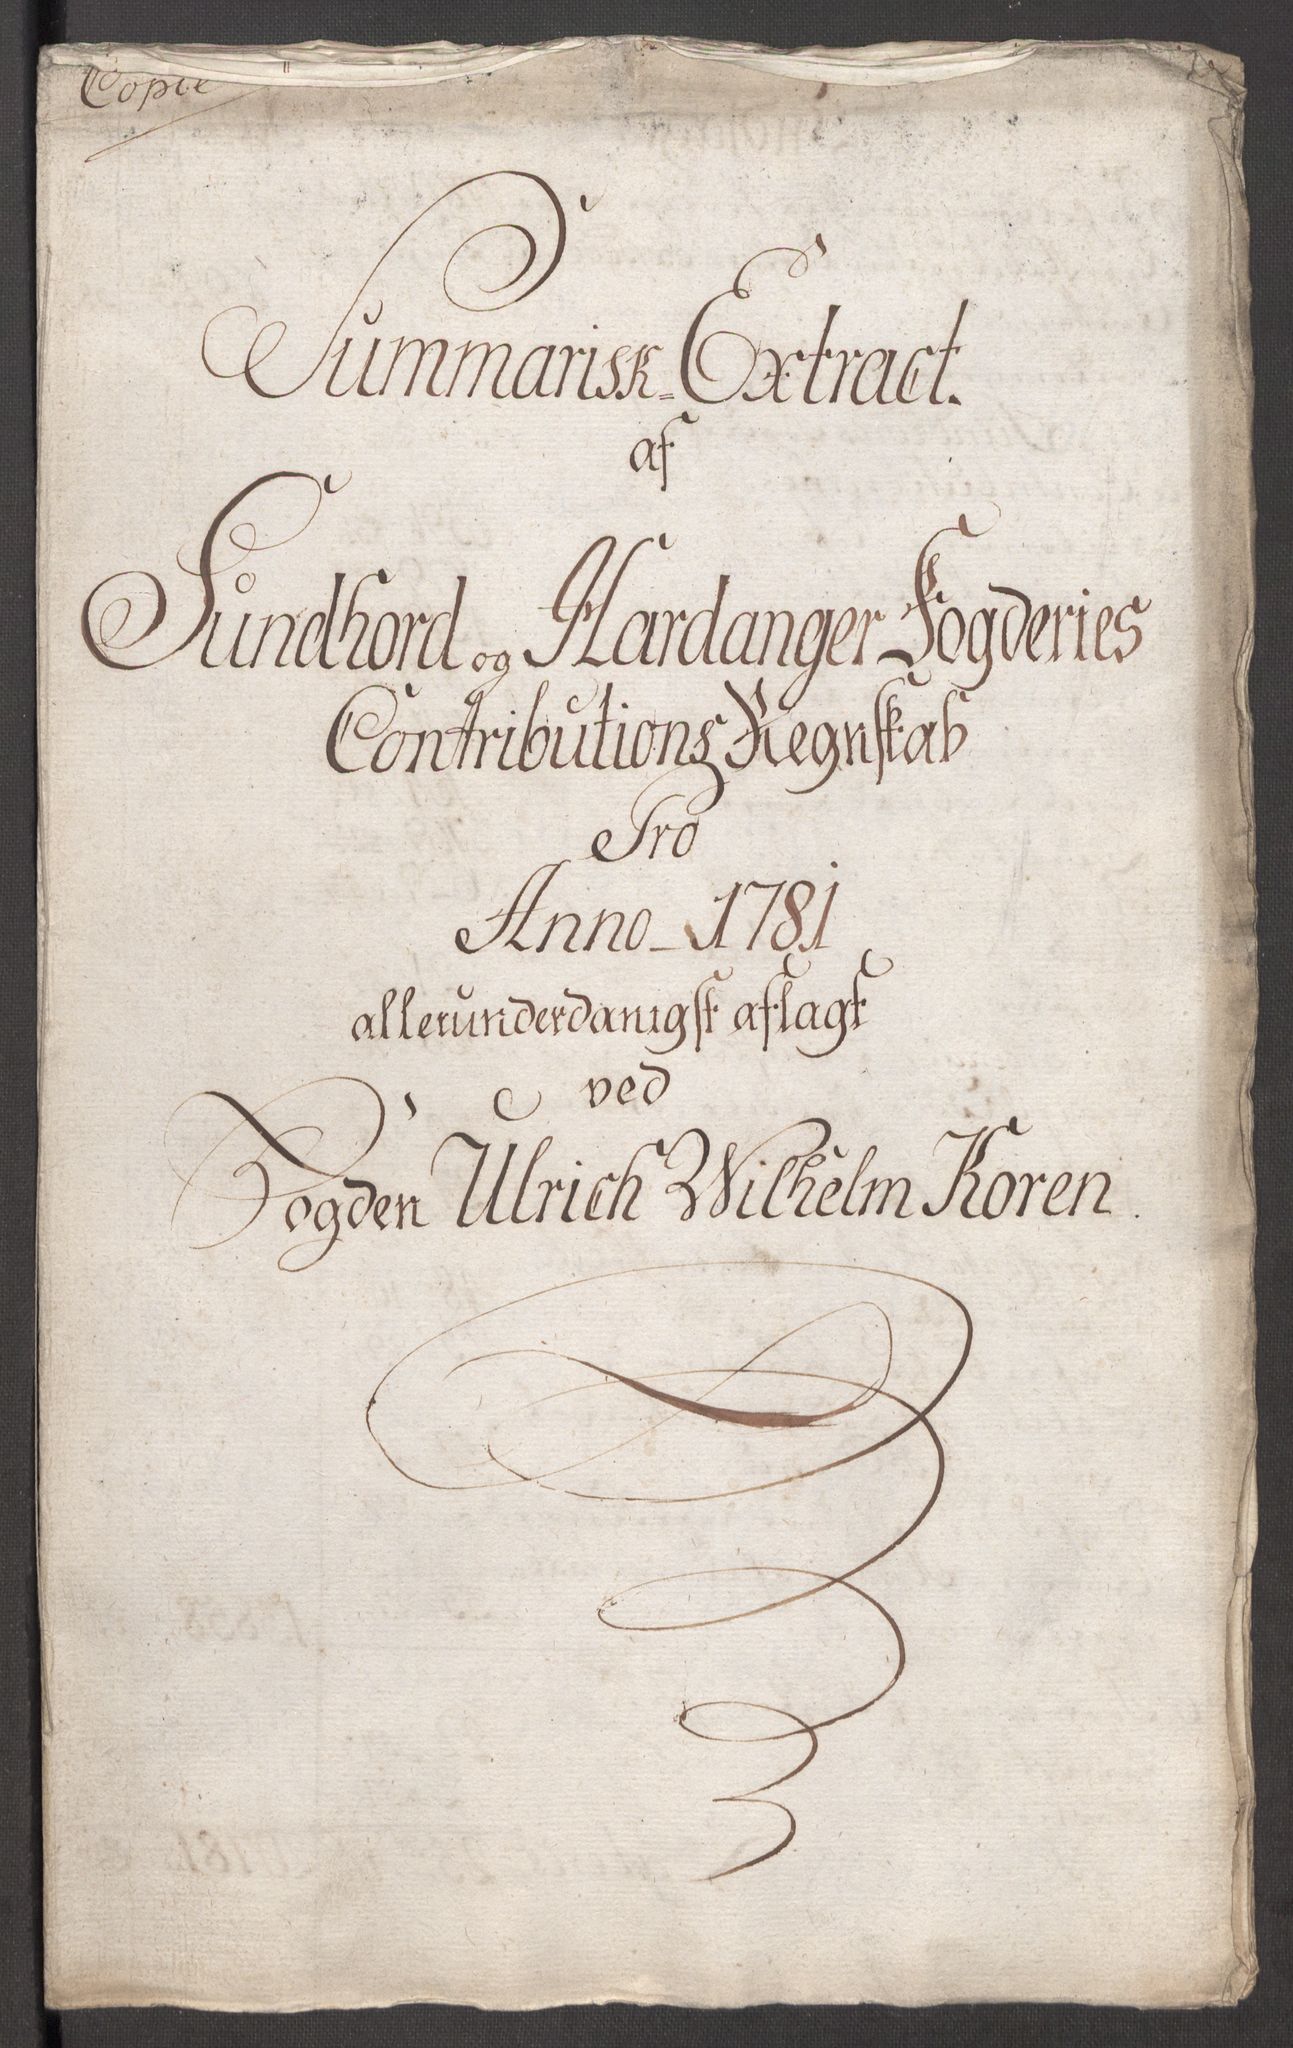 Copie
Summarisk= Extract.
af
Sundhord og Hardanger Fogderies
Contributions Regnskab
Pro
Anno_ 1781
allerunderdanigst aflagt
ved
Fogden Ulrich Wilhelm Koren.